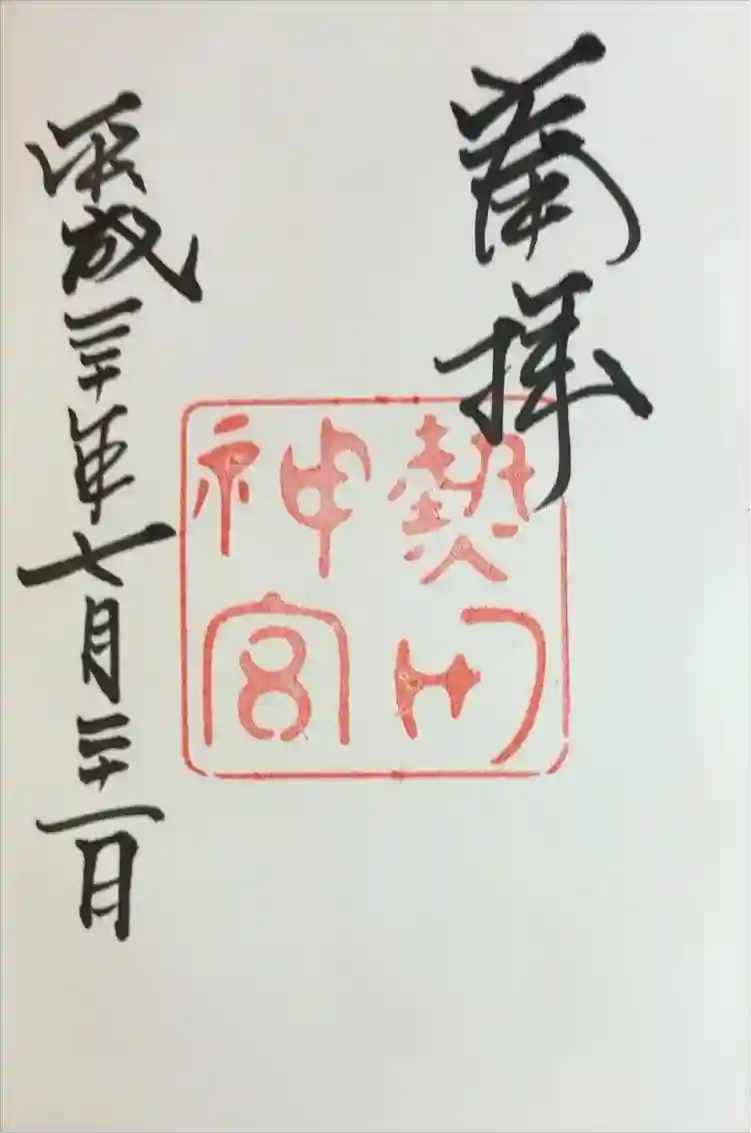 奉拝
熱田
神宮
平成三十年七月二十一日